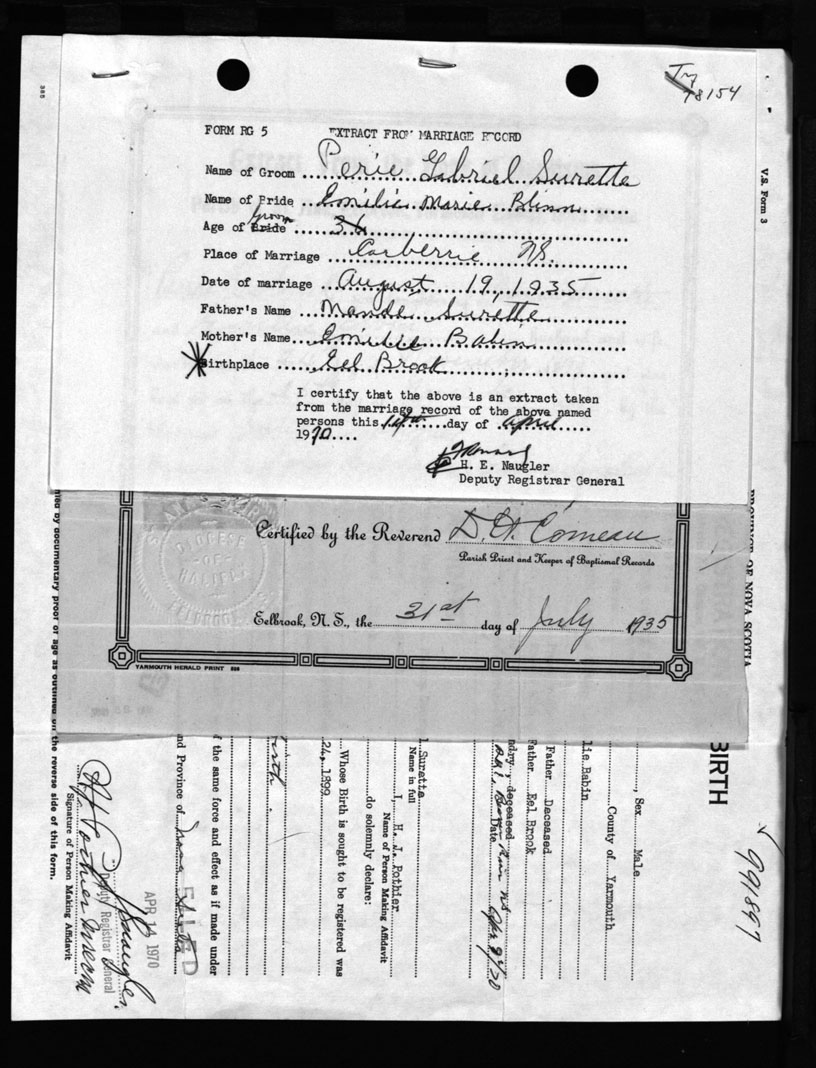 Ty
78154
385
V.S. Form 3
FORM RG 5 EXTRACT FROM MARRIAGE RECORD
Name of Groom Perie Gabriel Surette
Name of Bride Emilie Marie Blinn
Groom
Age of Bride 36
Place of Marriage Carberrie NS.
Date of marriage August 19, 1935
Father's Name Mande Surette
Mother's Name Emilie Babin
Birthplace Eel Brook
I certify that the above is an extract taken
from the marriage record of the above named
persons this 14th day of April
1970
H. E. Naugler
Deputy Registrar General
DIOCESE
HALIFAX
EELBROOK
Certified by the Reverend D. H. Comeau
Parish Priest and Keeper of Baptismal Records
Eelbrook, N. S., the 31st day of July 1935
YARMOUTH HERALD PRINT
PROVINCE OF NOVA SCOTIA
BIRTH
991897
Sex Male
County of Yarmouth
lie Babin
Father Deceased
Father Eel Brook
ndry, deceased
Date Apr 9/70
l Surette
Name in full
I, H. J. Pothier
Name of Person Making Affidavit
do solemnly declare:
Whose Birth is sought to be registered was
24, 1899
irth
f the same force and effect as if made under
nd Province of Nova Scotia
FILED
APR 14 1970
Deputy Registrar General
Signature of Person Making Affidavit
ned by documentary proof of age as outlined on the reverse side of this form.